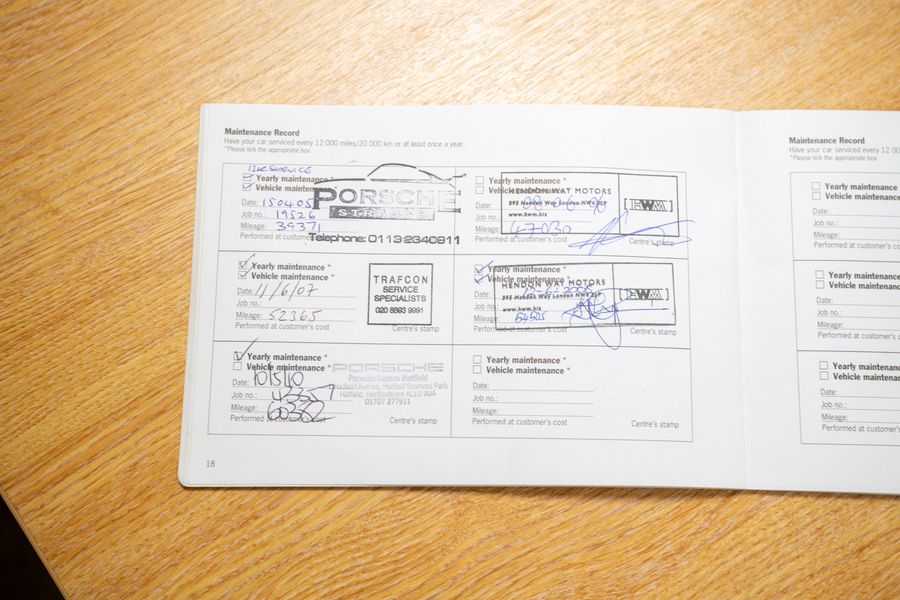 Maintenance Record
Have your car serviced every 12 000 miles/20 000 km or at least once a year.
*Please tick the appropriate box
12K SERVICE
Yearly maintenance *
Vehicle maintenance *
Date: 150405
Job no.: 19526
Mileage: 39371
Performed at customer's cost
PORSCHE
Telephone: 0113 2340911
Yearly maintenance *
Vehicle
Date:
Job no.:
Mileage: 47030
Performed at customer's cost
HENDON WAY MOTORS
395 Hendon Way London NW4
www.hwm.biz
HWM
Centre's stamp
Yearly maintenance *
Vehicle maintenance *
Date: 11/6/07
Job no.:
Mileage: 52365
Performed at customer's cost
TRAFCON
SERVICE
SPECIALISTS
020 8893 9991
Centre's stamp
Yearly maintenance *
Vehicle maintenance *
Date:
Job no.:
Mileage:
Performed at customer's cost
HENDON WAY MOTORS
395 Hendon Way London NW4
www.hwm.biz
HWM
Centre's stamp
Yearly maintenance *
Vehicle maintenance *
Date: 10/5/10
Job no.:
Mileage:
Performed at customer's cost
PORSCHE
Porsche Centre Hatfield
Hatfield Avenue, Hatfield Business Park
Hatfield, Hertfordshire AL10 9UA
01707 277911
Centre's stamp
Yearly maintenance *
Vehicle maintenance *
Date:
Job no.:
Mileage:
Performed at customer's cost
Centre's stamp
18
Maintenance Record
Have your car serviced every 12 00
*Please tick the appropriate box
Yearly maintenance *
Vehicle maintenance
Date:
Job no.:
Mileage:
Performed at customer's co
Yearly maintenance *
Vehicle maintenance
Date:
Job no.:
Mileage:
Performed at customer's
Yearly maintenance
Vehicle maintenance
Date:
Job no.:
Mileage:
Performed at customer's